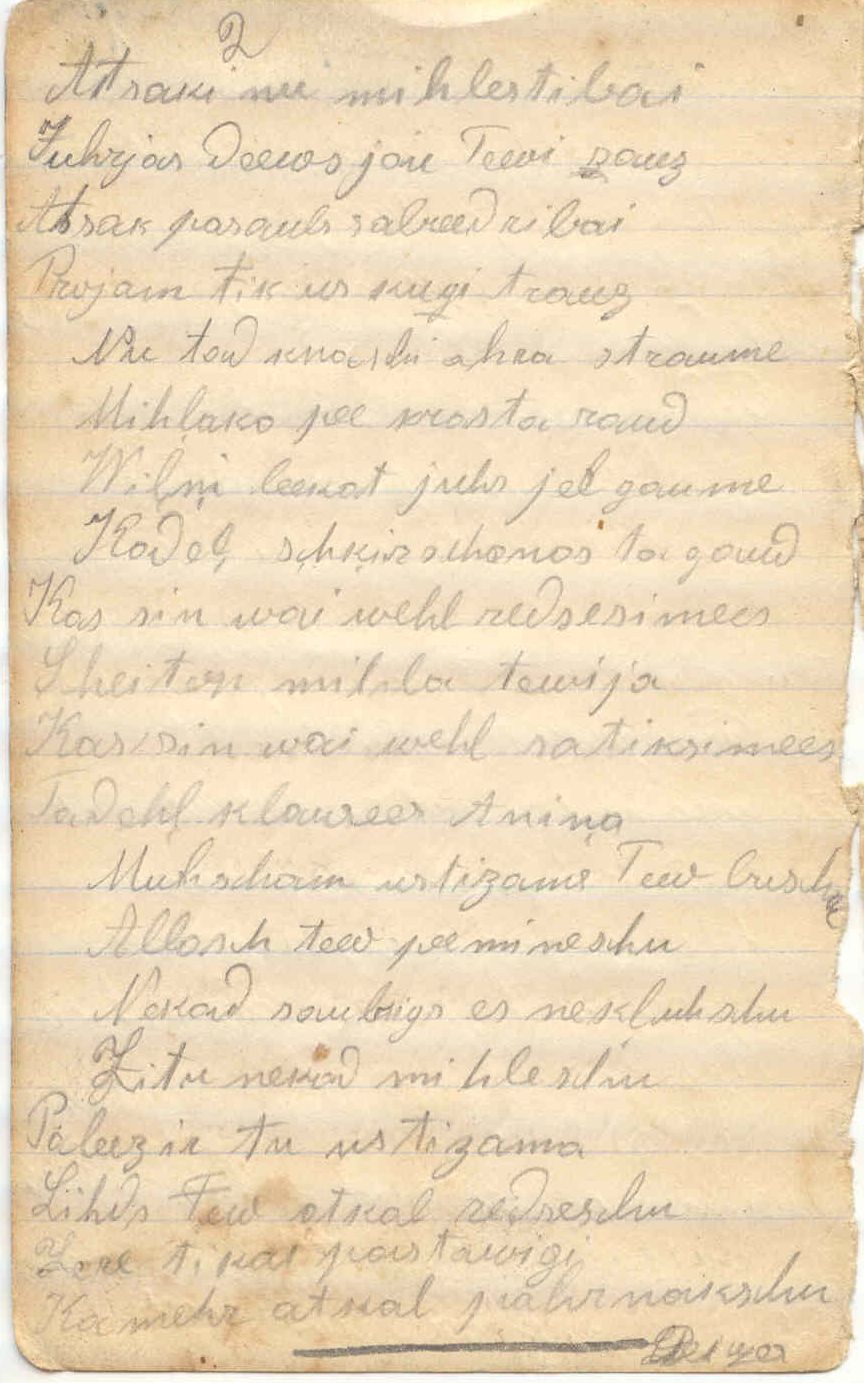 2
Atsaki nu mihlestibai
Juhrjas Deews jau Tewi zauz
Atsak pasauls sabeedribai
Projam tik us kugi trauz
Nu tad knaschi ahra straume
Mihļako pee krasta raud
Wilņi leekat juhs jel gaume
Kadeļ schķirschanos ta gaud
Kas sin wai wehl redsesimees
Scheiten mihļa tewija
Kas sin wai wehl satiksimees
Tadehļ klausees Aniņa
Muhscham ustizams Tew buschu
Allasch tew peemineschu
Nekad saubigs es nekļuhschu
Zitu nekad mihleschu
Paleez ir tu ustizama
Lihds Tew atkal redseschu
Zere tikai pastawigi
Kamehr atkal pahrnakschu
Beigas